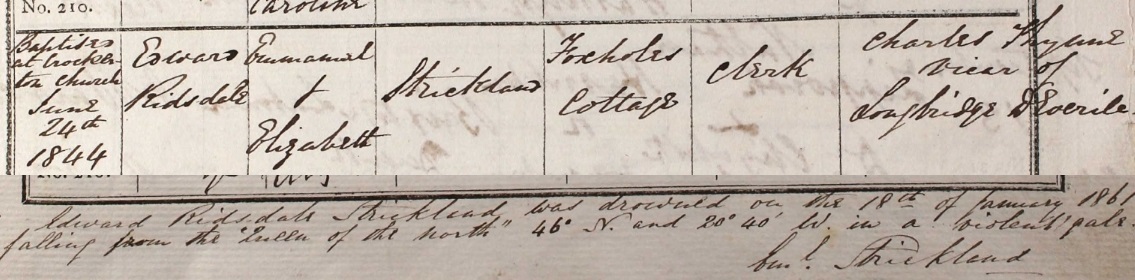 No. 210.
Caroline
Baptised at Crockerton Church June 24th 1844
Edward Ridsdale
Emmanuel & Elizabeth
Strickland
Foxholes Cottage
Clerk
Charles Thynne Vicar of Longbridge Deverile
Edward Ridsdale Strickland, was drowned on the 18th of January 1861
falling from the "Queen of the North" 46° N. and 20° 40' W. in a violent gale.
Eml. Strickland